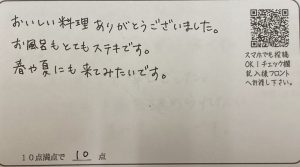 おいしい料理ありがとうございました。
お風呂もとてもステキです。
春や夏にも来てみたいです。
スマホでも投稿
OK！チェック欄
記入後フロント
へお渡し下さい。
10点満点で 10 点